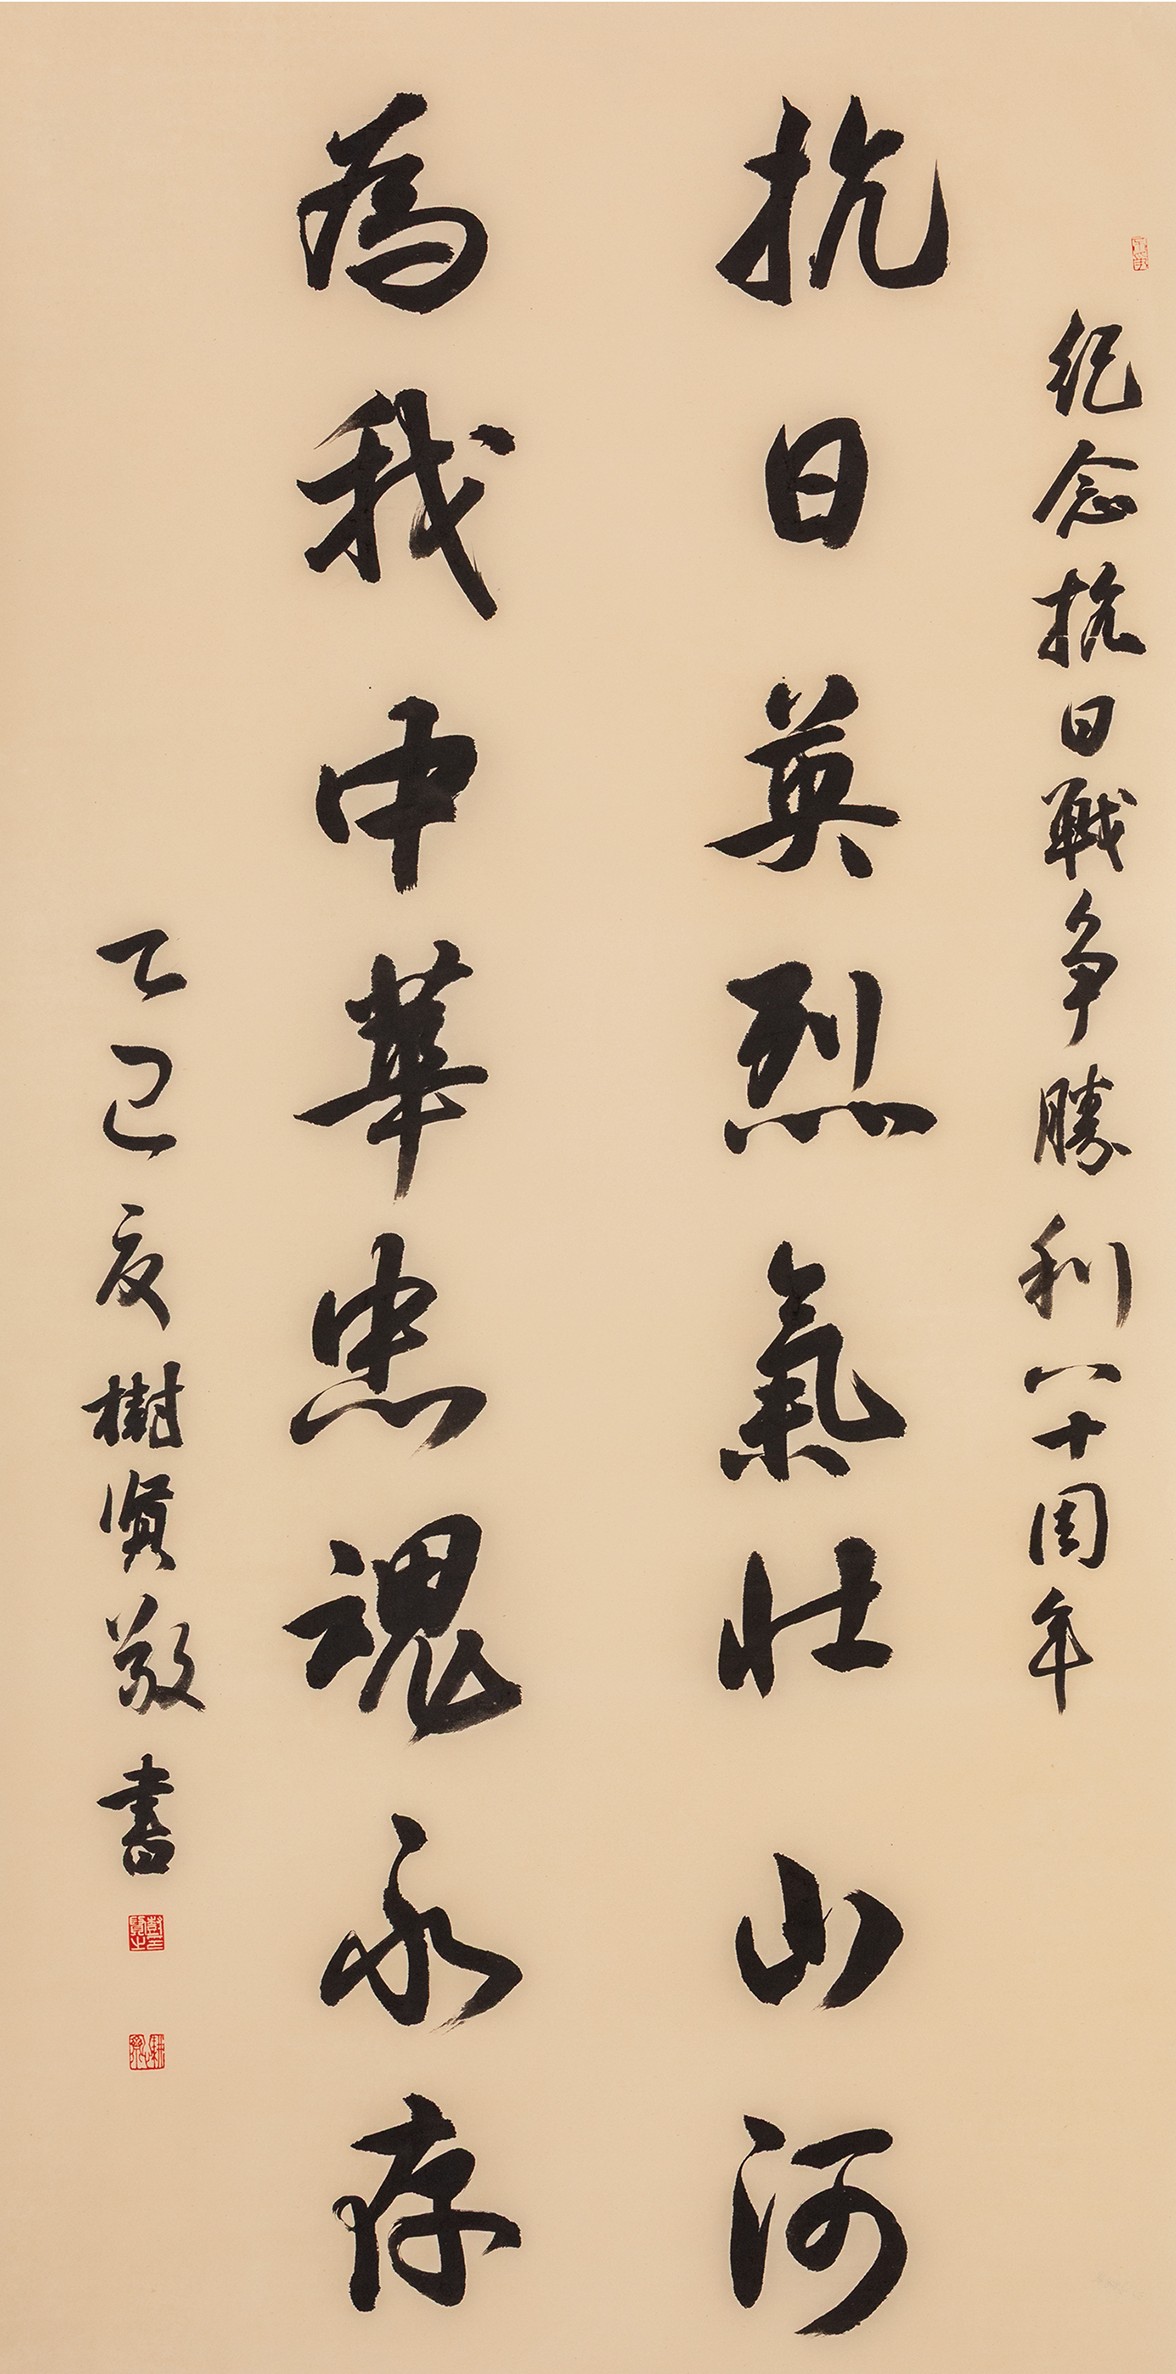 紀念抗日戰爭勝利八十周年
抗日英烈氣壯山河
為我中華忠魂永存
乙巳夏樹賢敬書